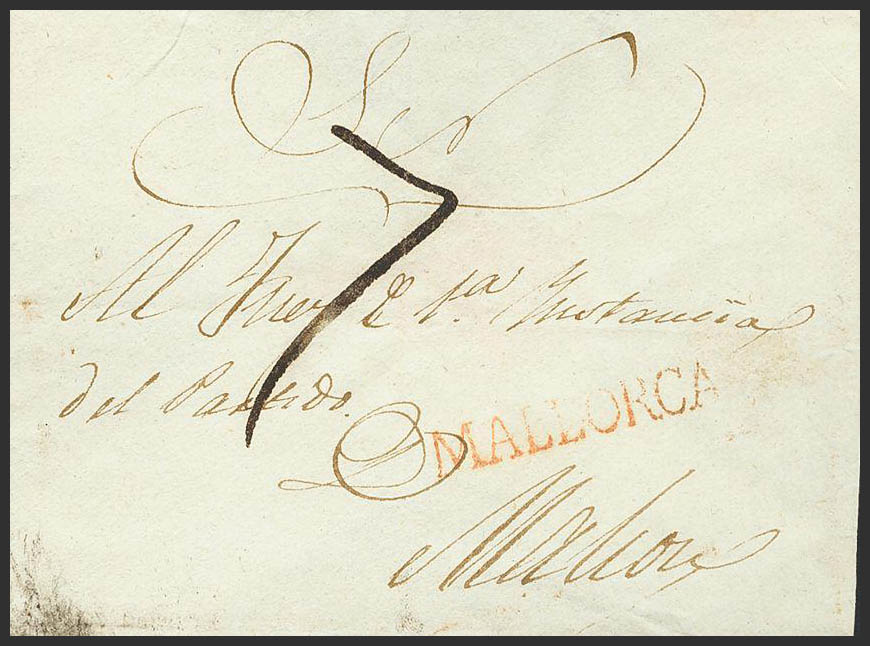 7
Al Juez de 1.ª Instancia
del Partido.
MALLORCA
Mahon